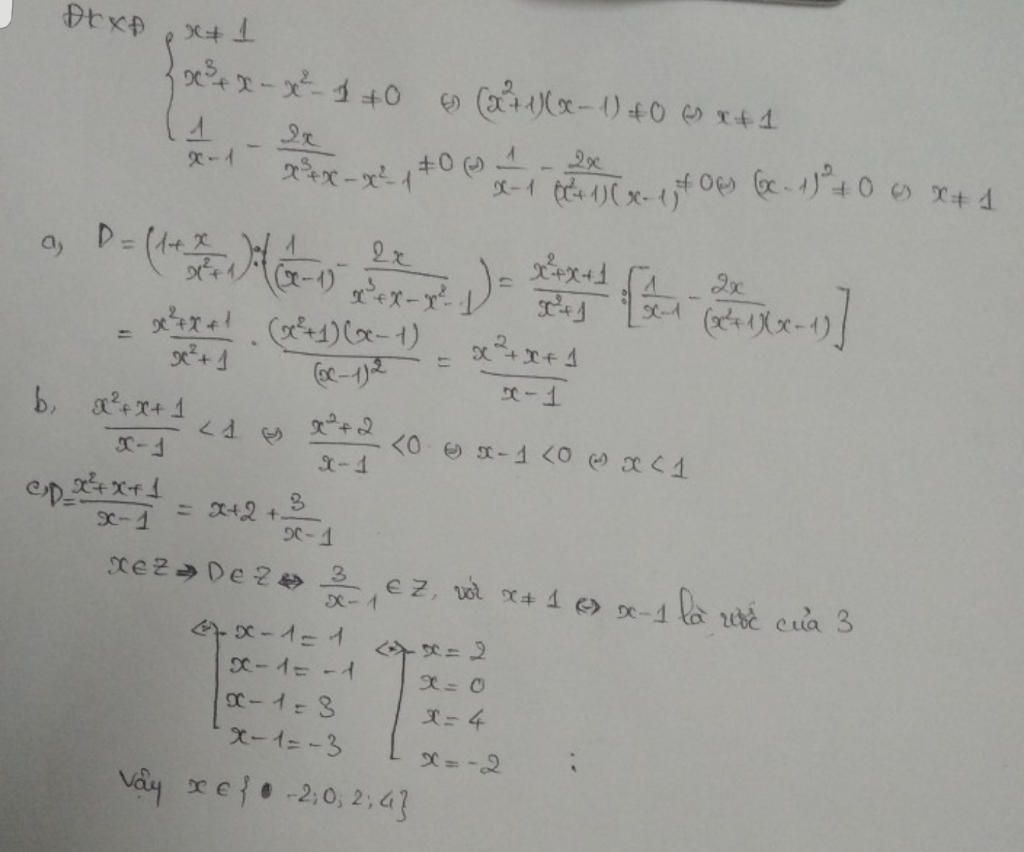 ĐKXĐ { x ≠ 1
x³ + x - x² - 1 ≠ 0 ⇔ (x²+1)(x-1) ≠ 0 ⇔ x ≠ 1
1/(x-1) - 2x/(x³+x-x²-1) ≠ 0 ⇔ 1/(x-1) - 2x/((x²+1)(x-1)) ≠ 0 ⇔ (x-1)² ≠ 0 ⇔ x ≠ 1
a, D = (1 + x/(x²+1)) : (1/(x-1) - 2x/(x³+x-x²-1)) = (x²+x+1)/(x²+1) : [1/(x-1) - 2x/((x²+1)(x-1))]
= (x²+x+1)/(x²+1) · ((x²+1)(x-1))/(x-1)² = (x²+x+1)/(x-1)
b, (x²+x+1)/(x-1) < 1 ⇔ (x²+2)/(x-1) < 0 ⇔ x-1 < 0 ⇔ x < 1
c, D = (x²+x+1)/(x-1) = x+2 + 3/(x-1)
x ∈ Z ⇒ D ∈ Z ⇔ 3/(x-1) ∈ Z, với x ≠ 1 ⇔ x-1 là ước của 3
⇔ [ x-1 = 1 ⇔ [ x = 2
x-1 = -1 x = 0
x-1 = 3 x = 4
x-1 = -3 x = -2 ;
Vậy x ∈ { -2; 0; 2; 4}